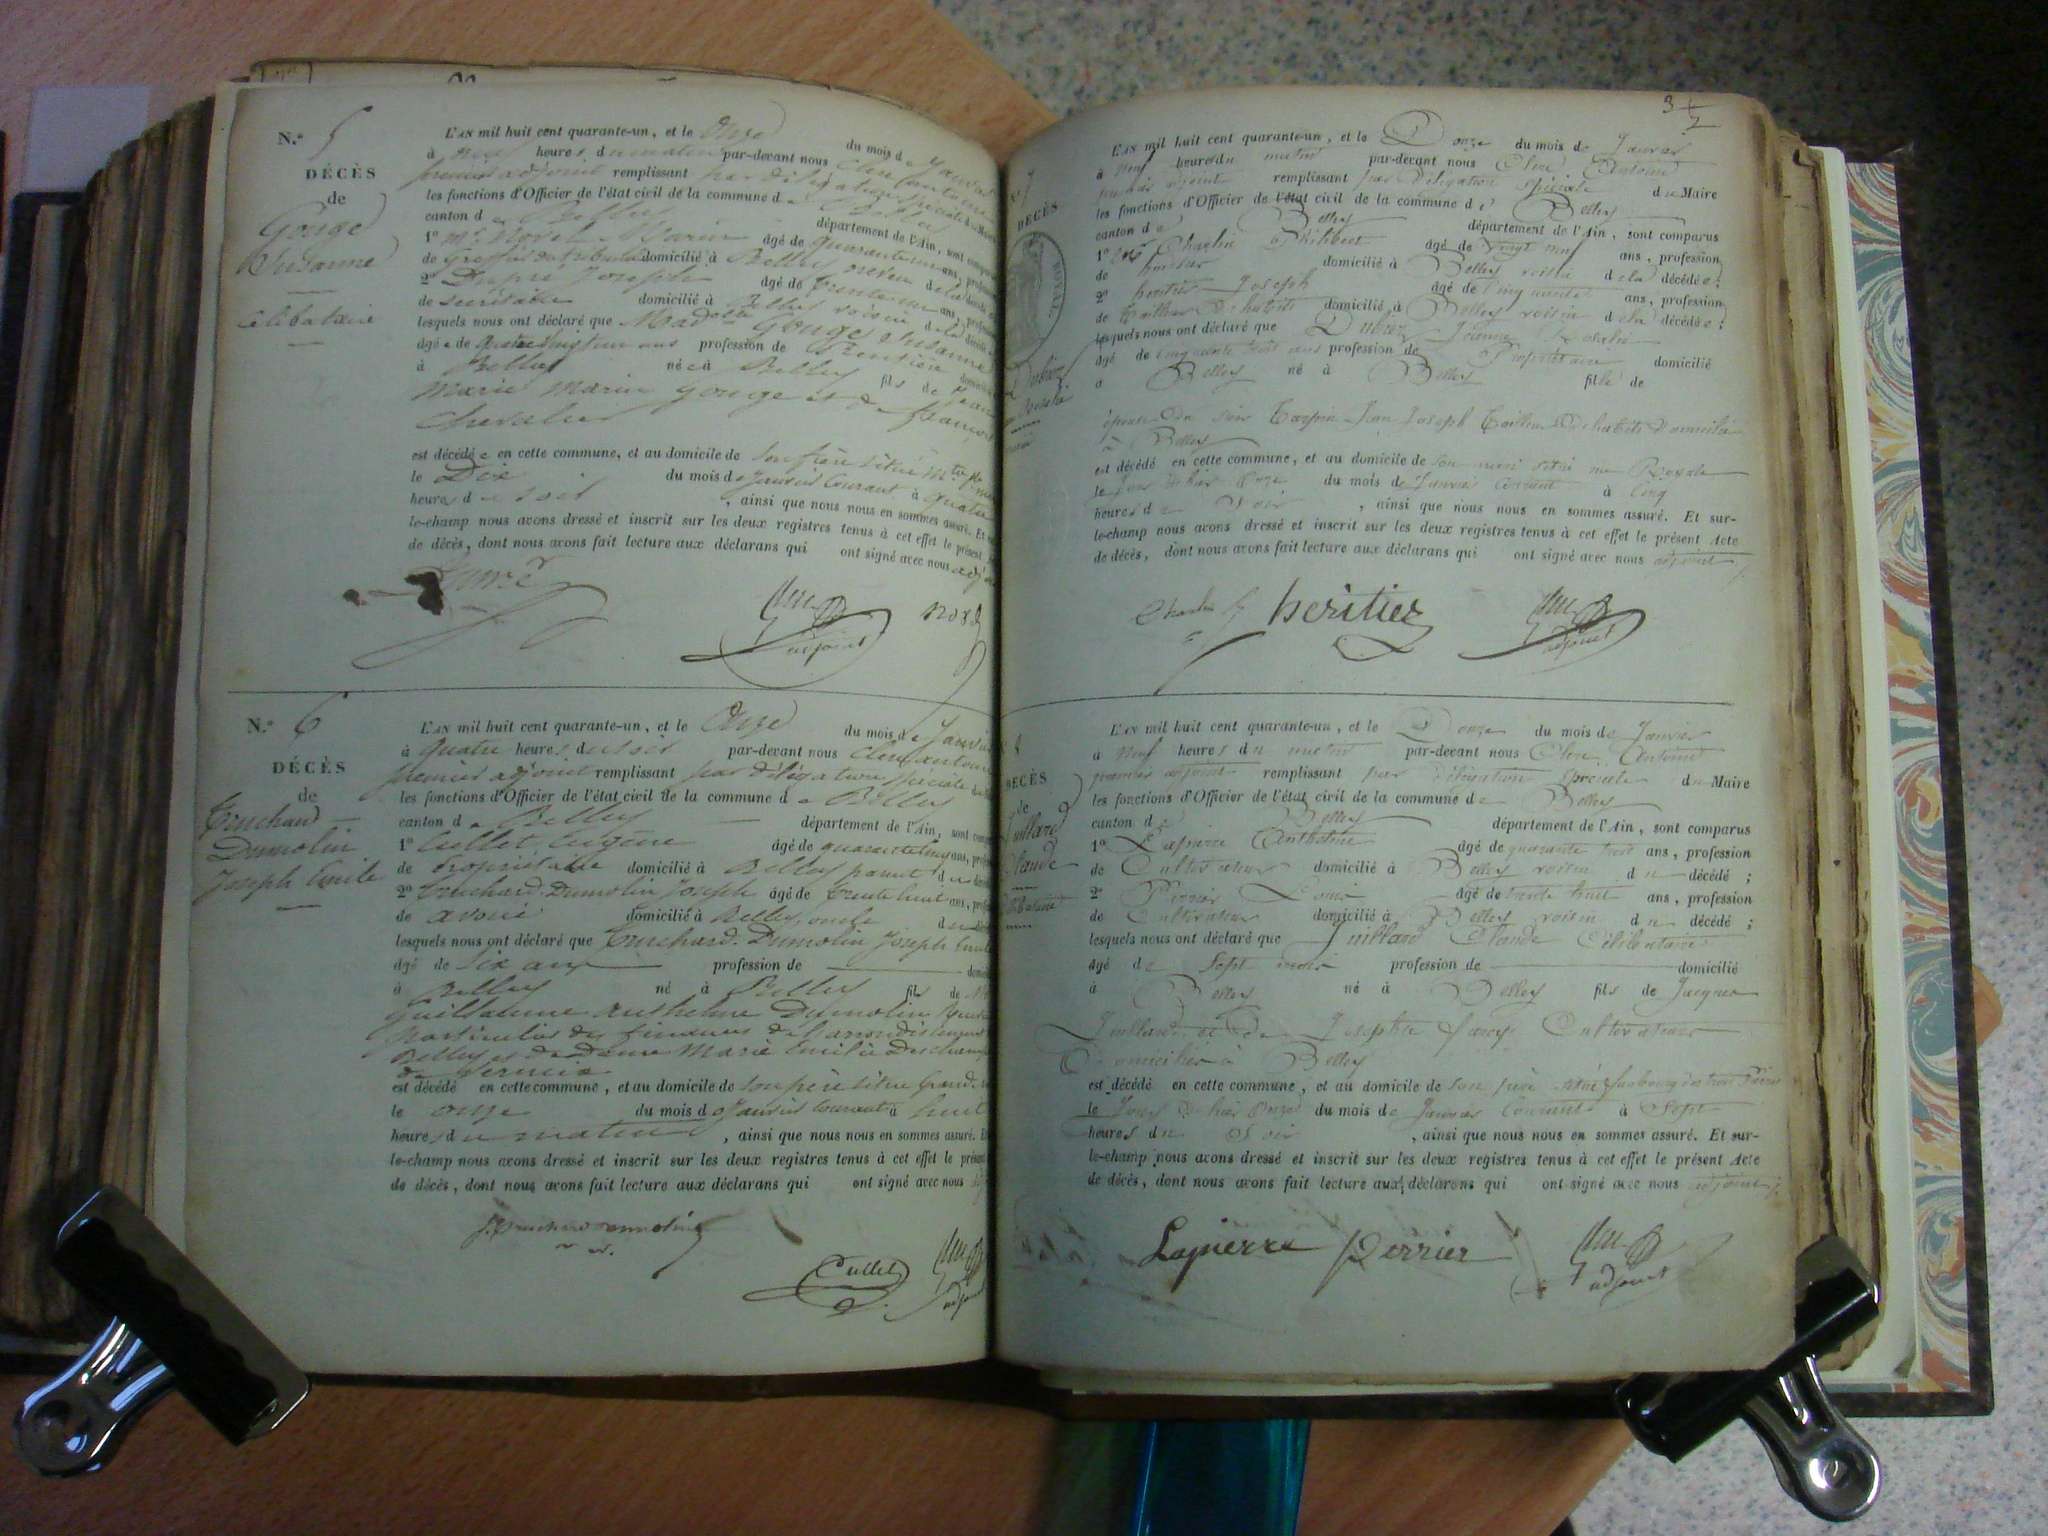 N.º 5
DÉCÈS
de
Gouge
Susanne
Célibataire
L'AN mil huit cent quarante-un, et le Onze du mois de Janvier
à neuf heures du matin par-devant nous Clerc Antoine
premier adjoint remplissant par délégation spéciale
les fonctions d'Officier de l'état civil de la commune de Belley
canton de Belley département de l'Ain, sont comparus
1º Mr. Marin âgé de ans, profession
de Greffier du tribunal domicilié à Belley
2º Dupré Joseph âgé de ans, profession
de secrétaire domicilié à Belley voisin de la décédée
lesquels nous ont déclaré que Madlle Gouge Susanne
âgée de profession de Rentière domiciliée
à Belley née à Belley fille de Jean
Marie Marin Gouge et de
Chevalier
est décédée en cette commune, et au domicile de son frère située
le Dix du mois de Janvier courant à quatre
heures du soir , ainsi que nous nous en sommes assuré. Et
le-champ nous avons dressé et inscrit sur les deux registres tenus à cet effet le présent
de décès, dont nous avons fait lecture aux déclarans qui ont signé avec nous
adjoint
N.º 6
DÉCÈS
de
Truchard
Dumolin
Joseph Emile
L'AN mil huit cent quarante-un, et le Onze du mois de Janvier
à quatre heures du soir par-devant nous Clerc Antoine
premier adjoint remplissant par délégation spéciale
les fonctions d'Officier de l'état civil de la commune de Belley
canton de Belley département de l'Ain, sont comparus
1º Cullet Eugène âgé de quarante cinq ans, profession
de Propriétaire domicilié à Belley parent du
2º Truchard Dumolin Joseph âgé de trente huit ans, profession
de avoué domicilié à Belley, oncle du
lesquels nous ont déclaré que Truchard-Dumolin Joseph Emile
âgé de six ans profession de
à Belley né à Belley fils de
Guillaume Anthelme Dumolin
particulier des finances de l'arrondissement
Belley et de Dame Marie Emilie Deschamps
de
est décédé en cette commune, et au domicile de son père situé Grande
le onze du mois de Janvier courant à huit
heures du matin , ainsi que nous nous en sommes assuré. Et
le-champ nous avons dressé et inscrit sur les deux registres tenus à cet effet le présent
de décès, dont nous avons fait lecture aux déclarans qui ont signé avec nous
Cullet
3
7
DÉCÈS
L'AN mil huit cent quarante-un, et le Douze du mois de Janvier
à neuf heures du matin par-devant nous Clerc Antoine
premier adjoint remplissant par délégation spéciale du Maire
les fonctions d'Officier de l'état civil de la commune de Belley
canton de Belley département de l'Ain, sont comparus
1º Charlin Philibert âgé de vingt neuf ans, profession
de domicilié à Belley voisin de la décédée;
2º Joseph âgé de cinquante ans, profession
de Tailleur d'habits domicilié à Belley voisin de la décédée;
lesquels nous ont déclaré que
âgé de cinquante trois ans profession de Propriétaire domicilié
à Belley né à Belley fille de
épouse du sieur Jean Joseph Tailleur d'habits domicilié
à Belley
est décédé en cette commune, et au domicile de son mari situé rue Royale
le jour d'hier Onze du mois de Janvier courant à Cinq
heures du Soir , ainsi que nous nous en sommes assuré. Et sur-
le-champ nous avons dressé et inscrit sur les deux registres tenus à cet effet le présent Acte
de décès, dont nous avons fait lecture aux déclarans qui ont signé avec nous adjoint
Charlin heritier adjoint
8
DÉCÈS
de
Juillard
Claude
L'AN mil huit cent quarante-un, et le Douze du mois de Janvier
à neuf heures du matin par-devant nous Clerc Antoine
premier adjoint remplissant par délégation spéciale du Maire
les fonctions d'Officier de l'état civil de la commune de Belley
canton de Belley département de l'Ain, sont comparus
1º Lapierre Anthelme âgé de quarante trois ans, profession
de Cultivateur domicilié à Belley voisin du décédé;
2º Perrier Louis âgé de trente huit ans, profession
de Cultivateur domicilié à Belley voisin du décédé;
lesquels nous ont déclaré que Juillard Claude Célibataire
âgé de Sept mois profession de domicilié
à Belley né à Belley fils de Jacques
Juillard et de Josephte Cultivateurs
Domiciliés à Belley
est décédé en cette commune, et au domicile de son père situé faubourg
le Jour d'hier Onze du mois de Janvier Courant à Sept
heures du Soir , ainsi que nous nous en sommes assuré. Et sur-
le-champ nous avons dressé et inscrit sur les deux registres tenus à cet effet le présent Acte
de décès, dont nous avons fait lecture aux déclarans qui ont signé avec nous adjoint
Lapierre Perrier adjoint